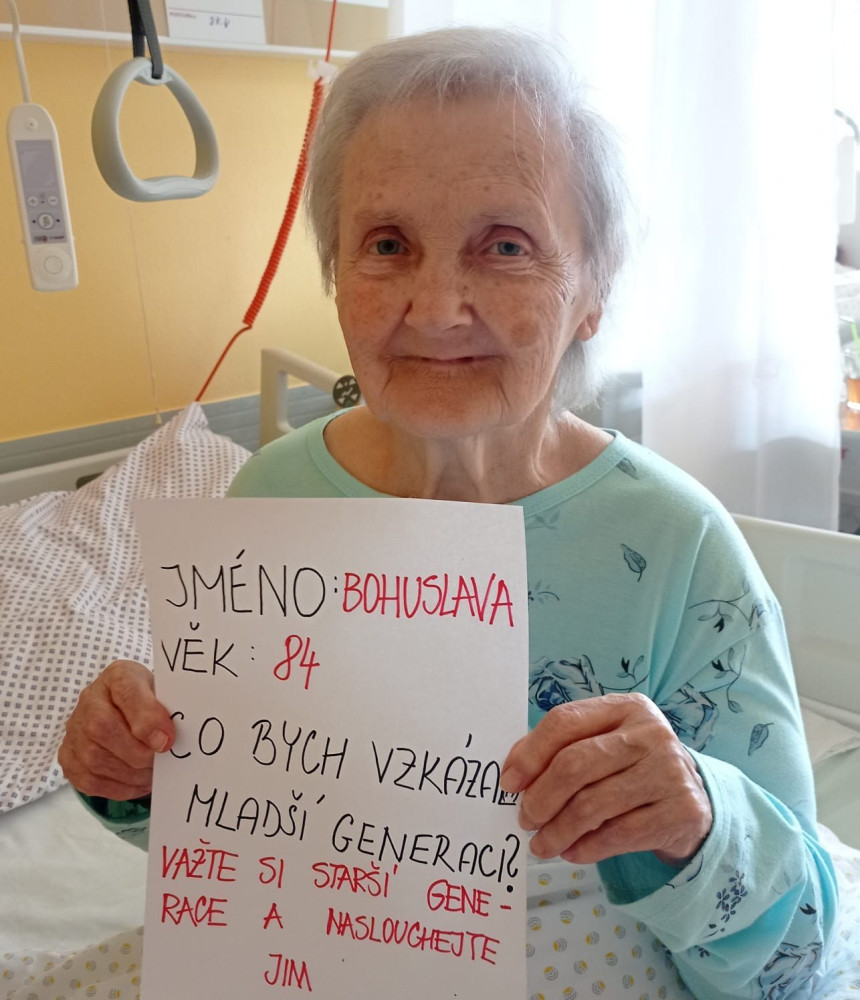 JMÉNO: BOHUSLAVA
VĚK: 84
CO BYCH VZKÁZA
MLADŠÍ GENERACI?
VAŽTE SI STARŠÍ GENE-
RACE A NASLOUCHEJTE
JIM